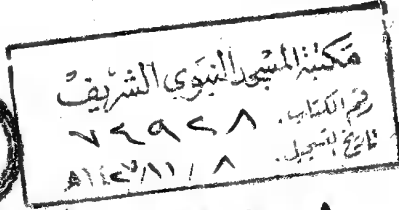 مكتبة المسجد النبوي الشريف
رقم الكتاب. ٧٤٩٢٨
تاريخ التسجيل. ٨ / ١١ / ١٤٢٣هـ